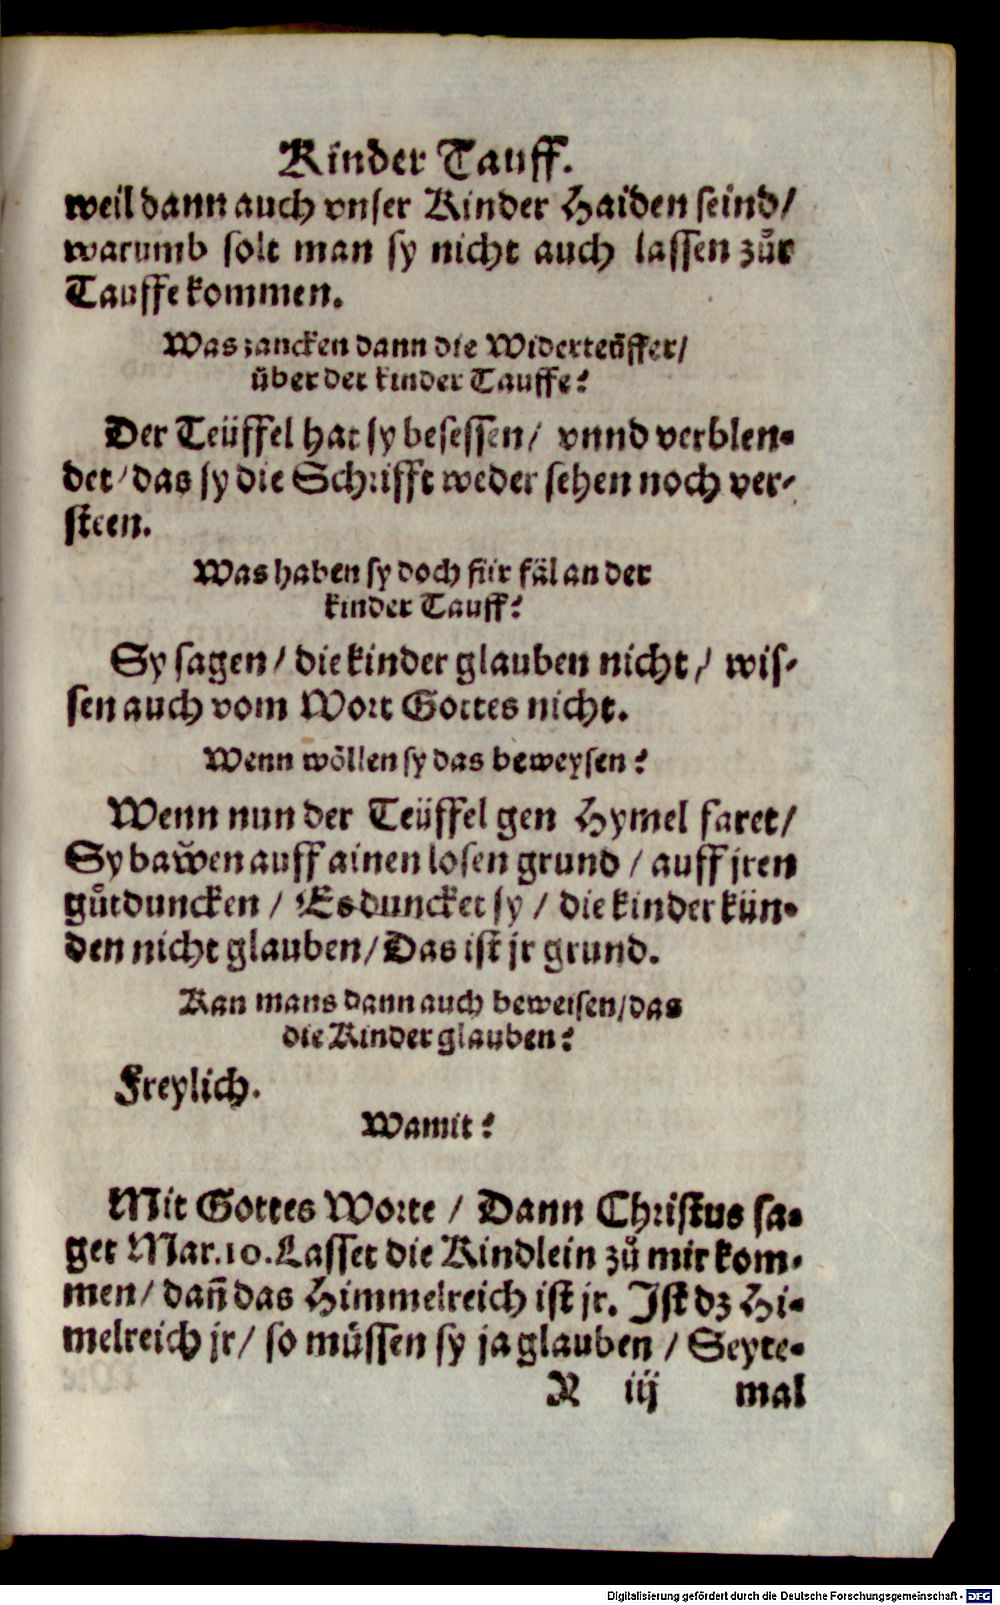 Kinder Tauff.
weil dann auch vnser Kinder Haiden seind/
warumb solt man sy nicht auch lassen zůr
Tauffe kommen.
Was zancken dann die Widerteüffer/
über der kinder Tauffe?
Der Teüffel hat sy besessen/ vnnd verblen-
det/das sy die Schrifft weder sehen noch ver-
steen.
Was haben sy doch für fäl an der
kinder Tauff?
Sy sagen/ die kinder glauben nicht/ wis-
sen auch vom Wort Gottes nicht.
Wenn wöllen sy das beweysen?
Wenn nun der Teüffel gen Hymel faret/
Sy baẅen auff ainen losen grund / auff jren
gůtduncken / Es duncket sy / die kinder kün-
den nicht glauben/Das ist jr grund.
Kan mans dann auch beweisen/das
die Kinder glauben?
Freylich.
Wamit?
Mit Gottes Worte / Dann Christus sa-
get Mar.10.Lasset die Kindlein zů mir kom-
men/ dañ das Himmelreich ist jr. Ist dz Hi-
melreich jr/ so müssen sy ja glauben / Seyte-
R iij mal
Digitalisierung gefördert durch die Deutsche Forschungsgemeinschaft - DFG